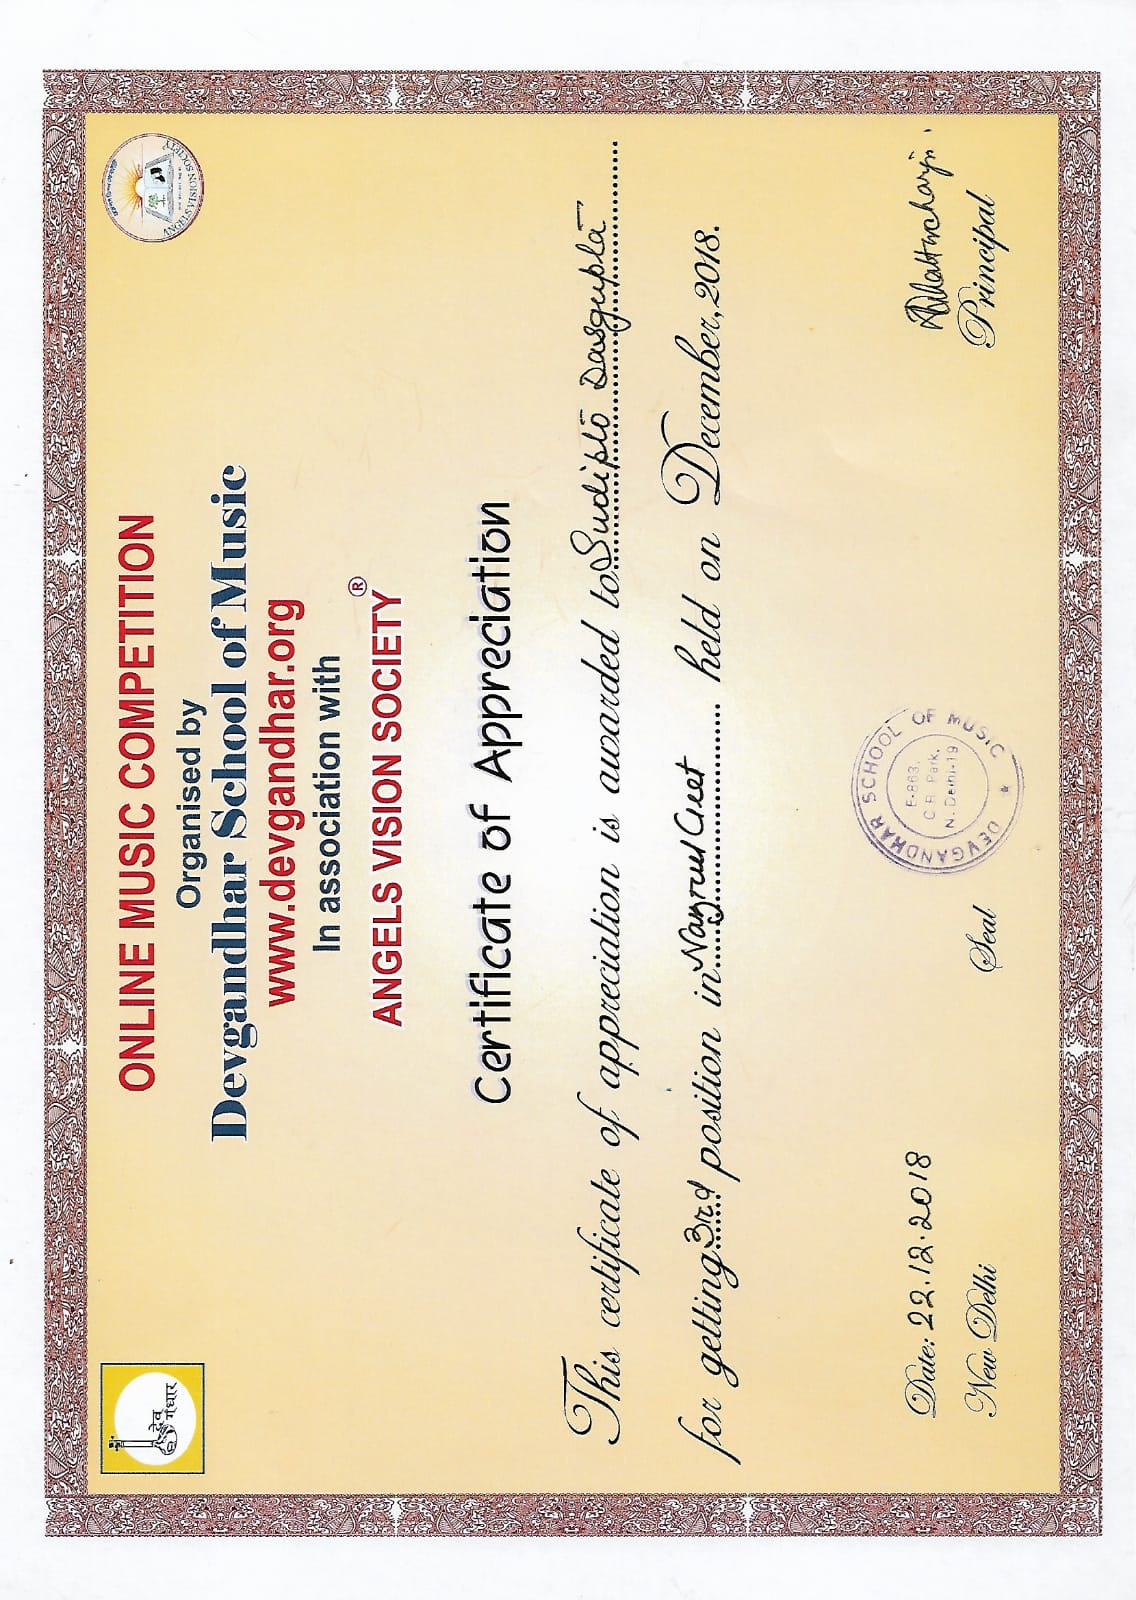 देव
गंधार
ONLINE MUSIC COMPETITION
Organised by
Devgandhar School of Music
www.devgandhar.org
In association with
ANGELS VISION SOCIETY®
ANGELS VISION SOCIETY
Certificate of Appreciation
This certificate of appreciation is awarded to Sudipto Dasgupta
for getting 3rd position in Nazrul Geet held on December, 2018.
Date: 22.12.2018
New Delhi
Seal
DEVGANDHAR SCHOOL OF MUSIC
E-863,
C.R. Park,
N. Delhi-19
Principal